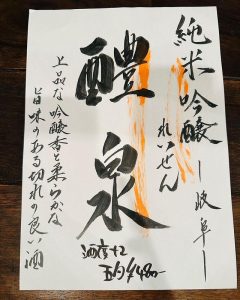 純米吟醸 ー岐阜ー
れいせん
醴泉
上品な吟醸香と柔らかな
旨味のある切れの良い酒
酒度+2
五勺 ¥480-